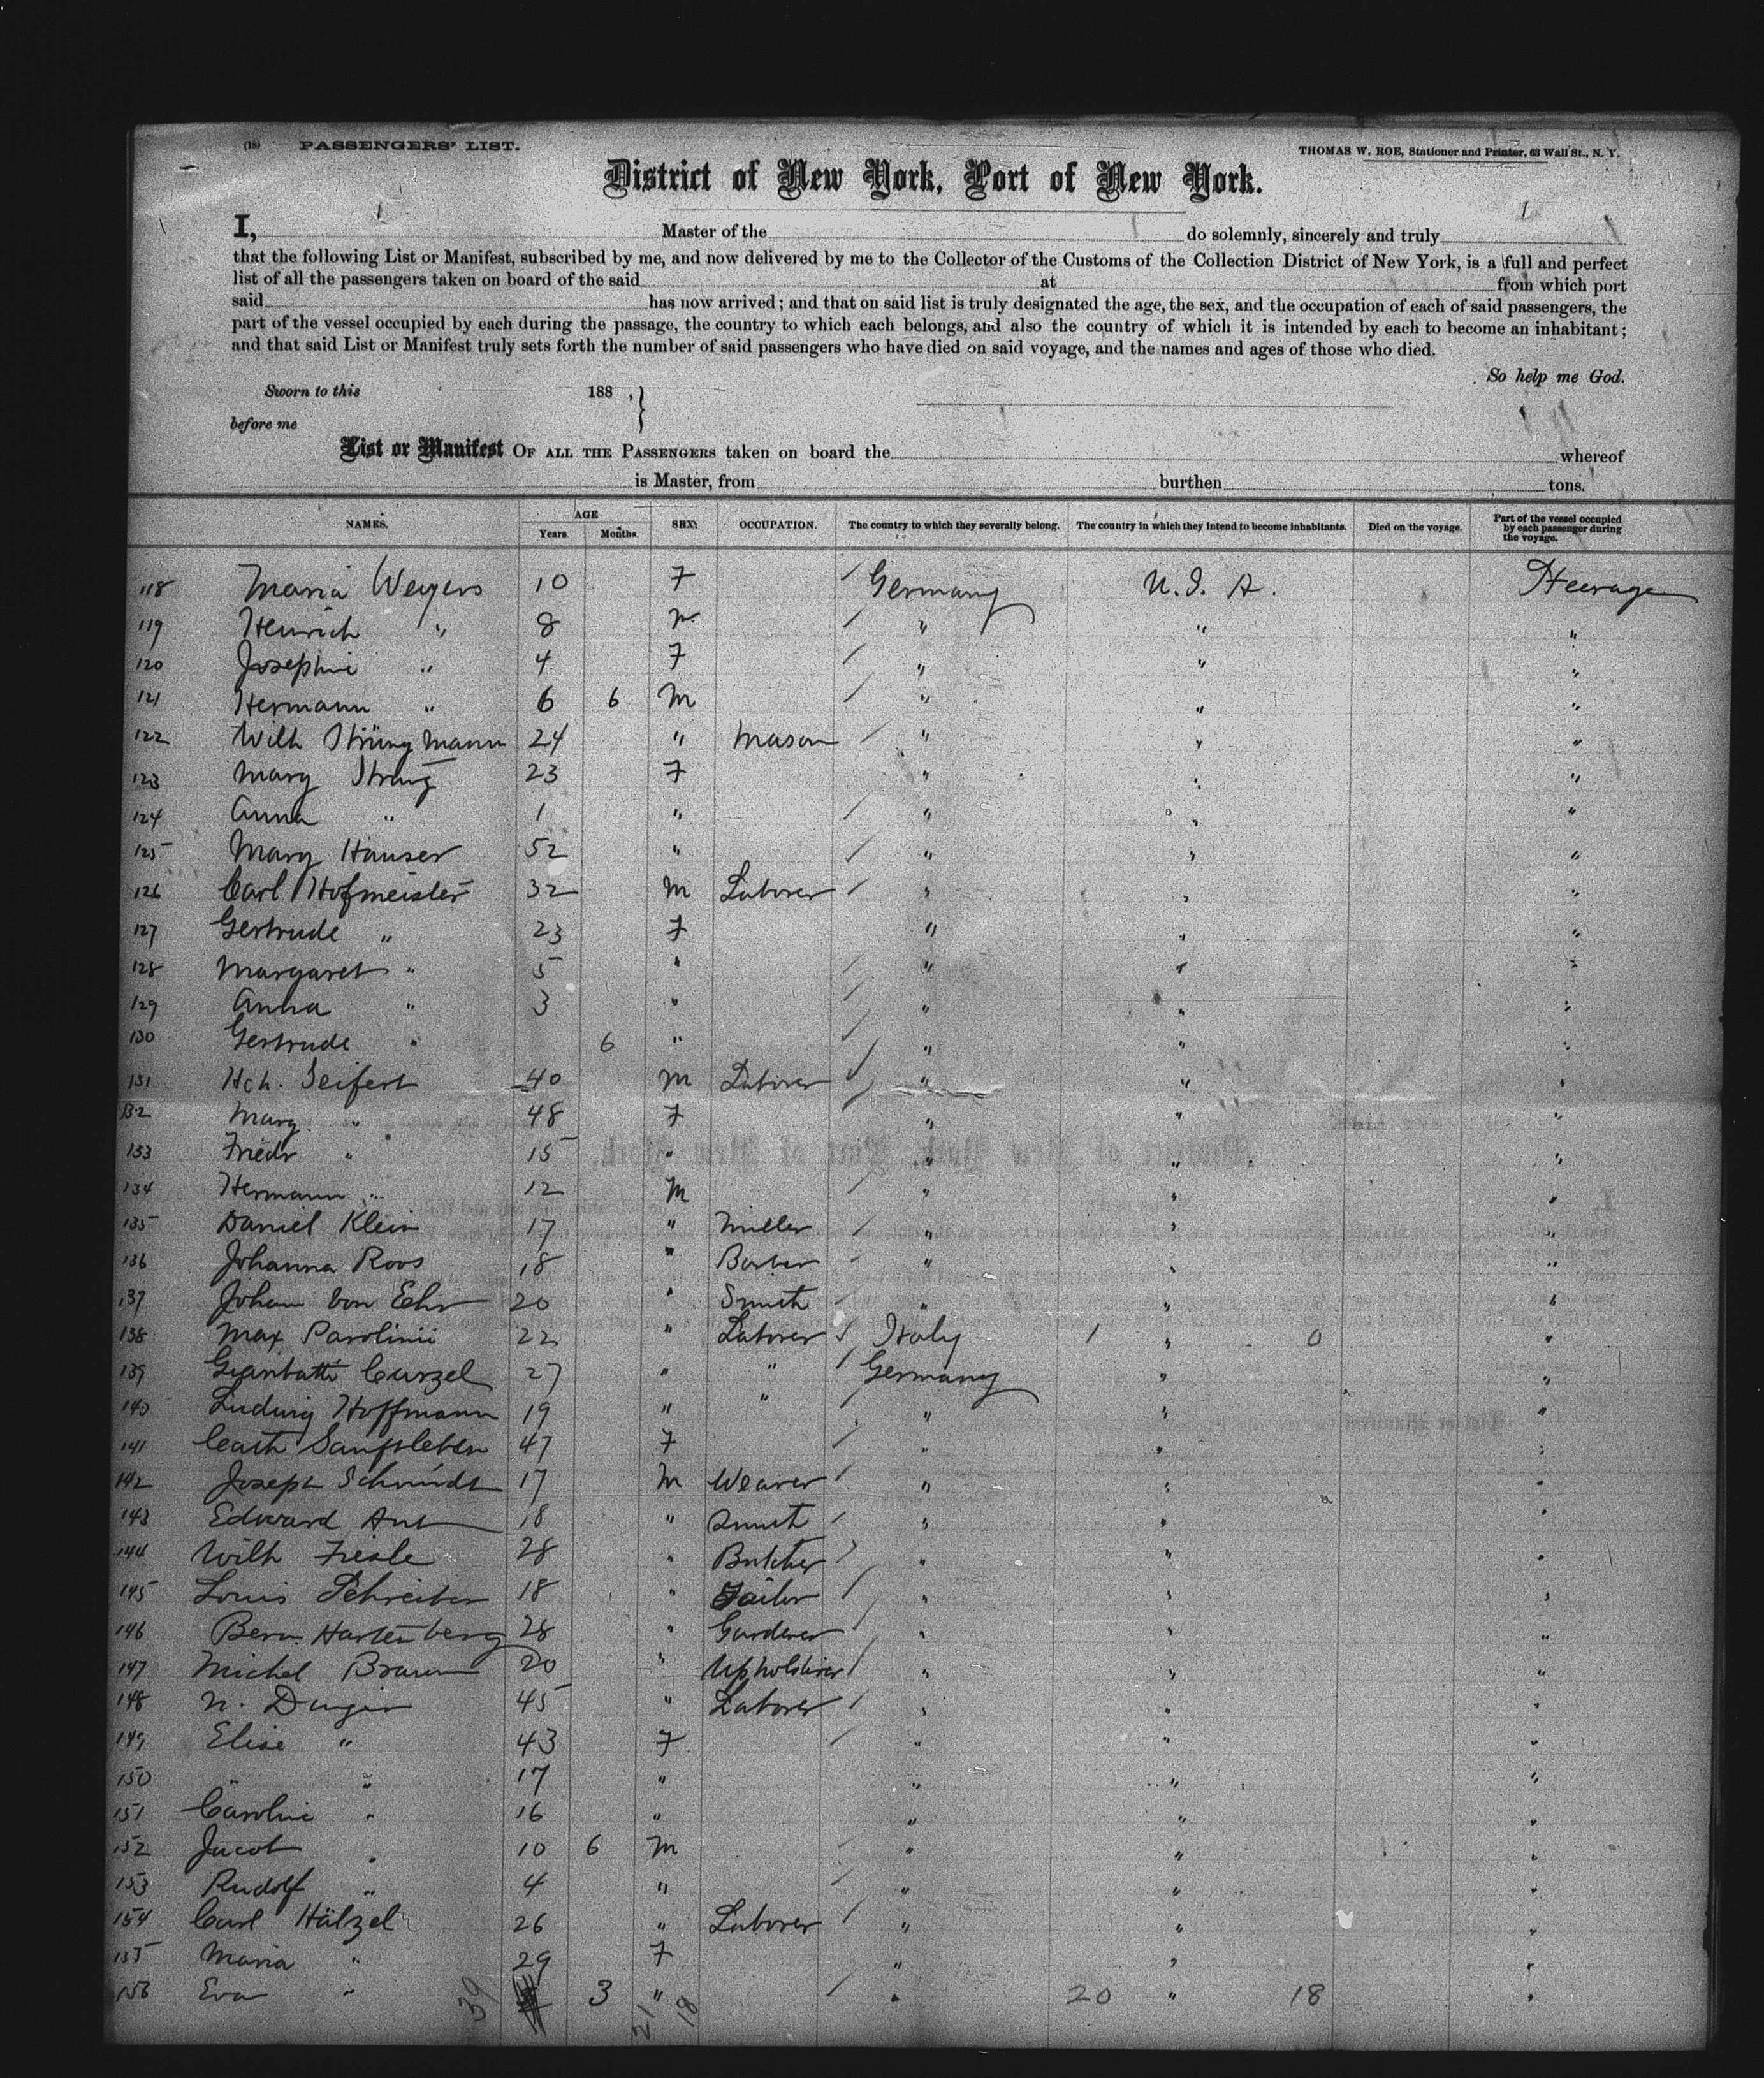 (18) PASSENGERS' LIST.
THOMAS W. ROE, Stationer and Printer, 63 Wall St., N. Y.
District of New York, Port of New York.
I, Master of the do solemnly, sincerely and truly
that the following List or Manifest, subscribed by me, and now delivered by me to the Collector of the Customs of the Collection District of New York, is a full and perfect
list of all the passengers taken on board of the said at from which port
said has now arrived; and that on said list is truly designated the age, the sex, and the occupation of each of said passengers, the
part of the vessel occupied by each during the passage, the country to which each belongs, and also the country of which it is intended by each to become an inhabitant;
and that said List or Manifest truly sets forth the number of said passengers who have died on said voyage, and the names and ages of those who died.
So help me God.
Sworn to this 188 ,
before me
List or Manifest OF ALL THE PASSENGERS taken on board the whereof
is Master, from burthen tons.
NAMES. AGE Years. Months. SEX. OCCUPATION. The country to which they severally belong. The country in which they intend to become inhabitants. Died on the voyage. Part of the vessel occupied by each passenger during the voyage.
118 Maria Weyers 10 F Germany U.S.A. Steerage
119 Heinrich " 8 M " " "
120 Josephine " 4 F " " "
121 Hermann " 6 6 M " " "
122 Wilh Strüng mann 24 " Mason " " "
123 Mary 23 F " " "
124 Anna " 1 " " " "
125 Mary Hauser 52 " " " "
126 Carl Hofmeister 32 M Laborer " " "
127 Gertrude " 23 F " " "
128 Margaret " 5 " " " "
129 Anna " 3 " " " "
130 Gertrude " 6 " " " "
131 Hch. Seifert 40 M Laborer " " "
132 Marg. " 48 F " " "
133 Friedr " 15 " " " "
134 Hermann " 12 M " " "
135 Daniel Klein 17 " Miller " " "
136 Johanna Roos 18 " Barber " " "
137 Johann von Ehr 20 " Smith " " "
138 Max Parolinii 22 " Laborer Italy 1 " 0 "
139 Gianbatti Curzel 27 " " Germany " "
140 Ludwig Hoffmann 19 " " " " "
141 Cath Sanftleben 47 F " " "
142 Joseph Schmidt 17 M Weaver " " "
143 Edward Ant 18 " Smith " " "
144 Wilh 28 " Butcher " " "
145 Louis Schreiber 18 " Tailor " " "
146 Bern. Hartenberg 28 " Gardener " " "
147 Michel Braun 20 " Upholsterer " " "
148 N. 45 " Laborer " " "
149 Elise " 43 F " " "
150 " " 17 " " " "
151 Caroline " 16 " " " "
152 Jacob " 10 6 M " " "
153 Rudolf " 4 " " " "
154 Carl Hälzel 26 " Laborer " " "
155 Maria " 29 F " " "
156 Eva " 3 " " 20 " 18 "
39 21 18